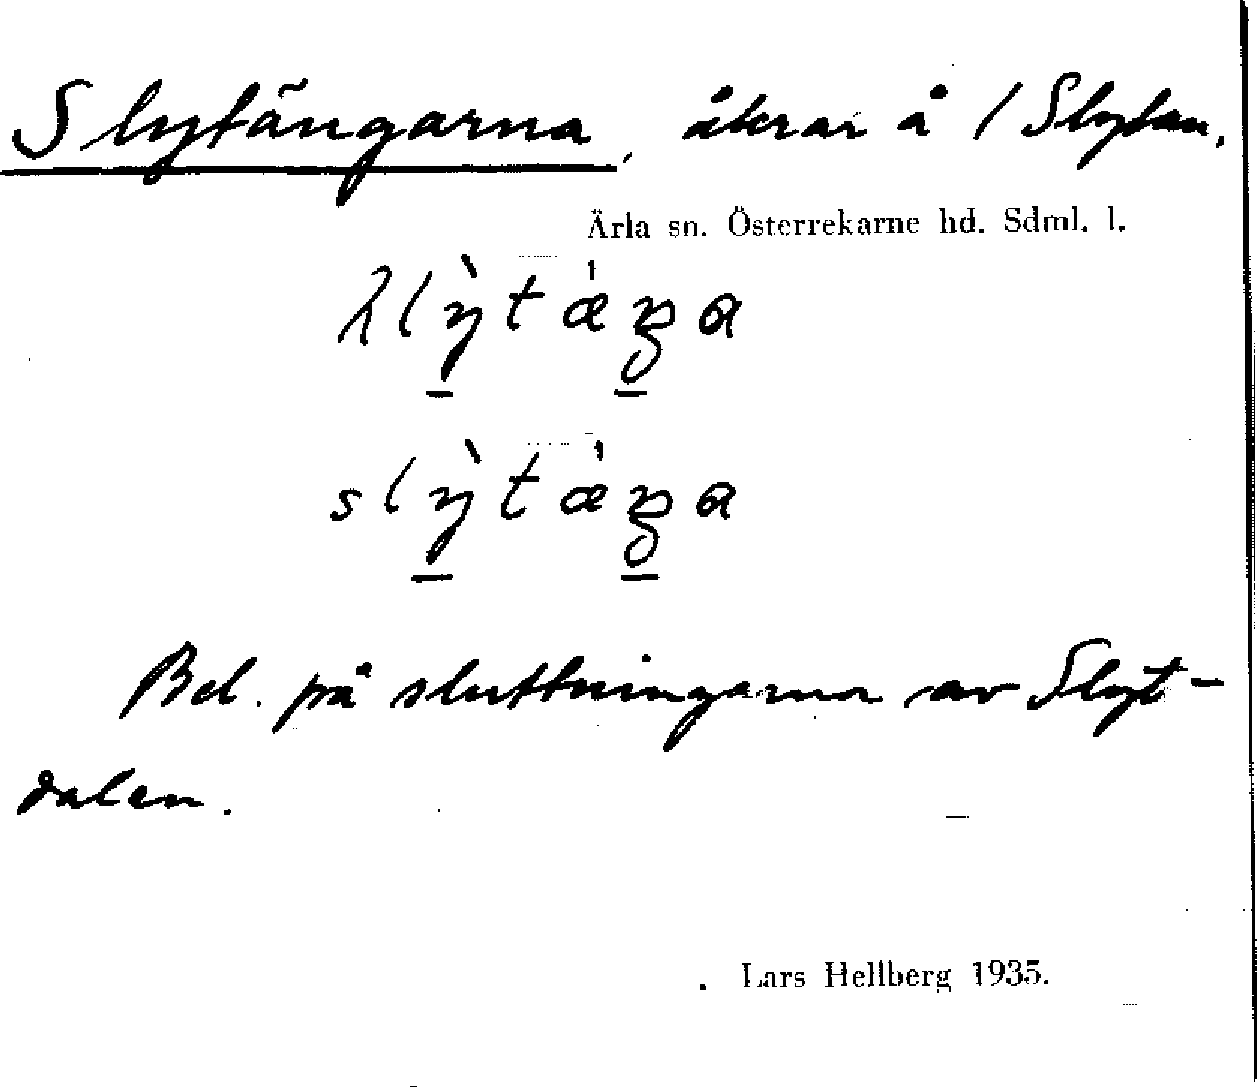 Slytängarna, åkrar å 1 Slytan.
Ärla sn. Österrekarne hd. Sdml. l.
slỳtáŋa
Bel. på sluttningarna av Slyt-
dalen.
Lars Hellberg 1935.